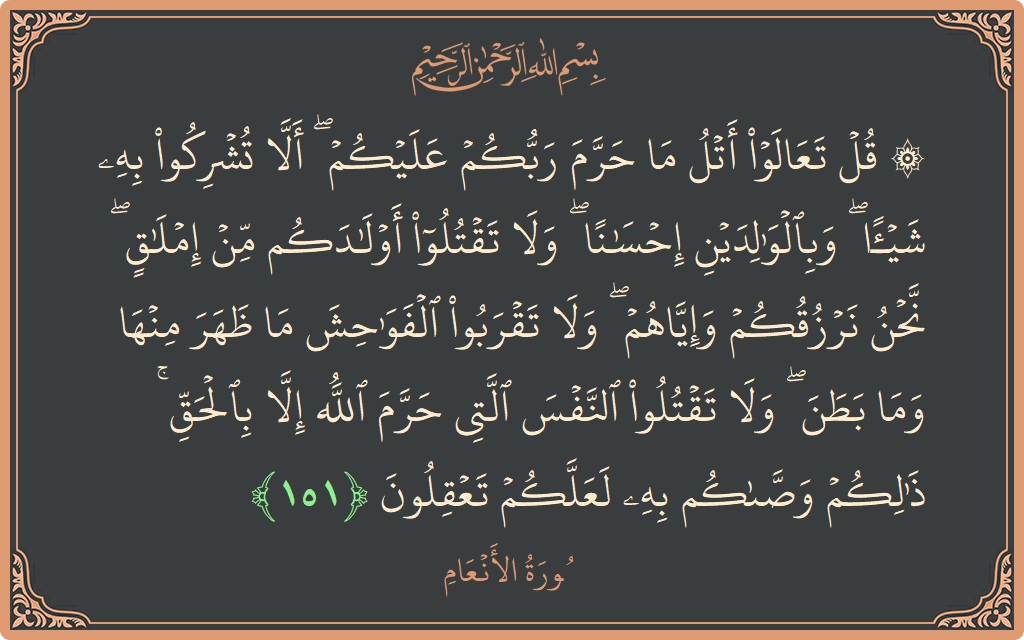 بِسْمِ اللَّهِ الرَّحْمَٰنِ الرَّحِيمِ
۞ قُلۡ تَعَالَوۡاْ أَتۡلُ مَا حَرَّمَ رَبُّكُمۡ عَلَيۡكُمۡۖ أَلَّا تُشۡرِكُواْ بِهِۦ
شَيۡـًٔاۖ وَبِٱلۡوَٰلِدَيۡنِ إِحۡسَٰنًاۖ وَلَا تَقۡتُلُوٓاْ أَوۡلَٰدَكُم مِّنۡ إِمۡلَٰقٖۖ
نَّحۡنُ نَرۡزُقُكُمۡ وَإِيَّاهُمۡۖ وَلَا تَقۡرَبُواْ ٱلۡفَوَٰحِشَ مَا ظَهَرَ مِنۡهَا
وَمَا بَطَنَۖ وَلَا تَقۡتُلُواْ ٱلنَّفۡسَ ٱلَّتِي حَرَّمَ ٱللَّهُ إِلَّا بِٱلۡحَقِّۚ
ذَٰلِكُمۡ وَصَّىٰكُم بِهِۦ لَعَلَّكُمۡ تَعۡقِلُونَ ﴿١٥١﴾
سُورَةُ الأَنۡعَامِ